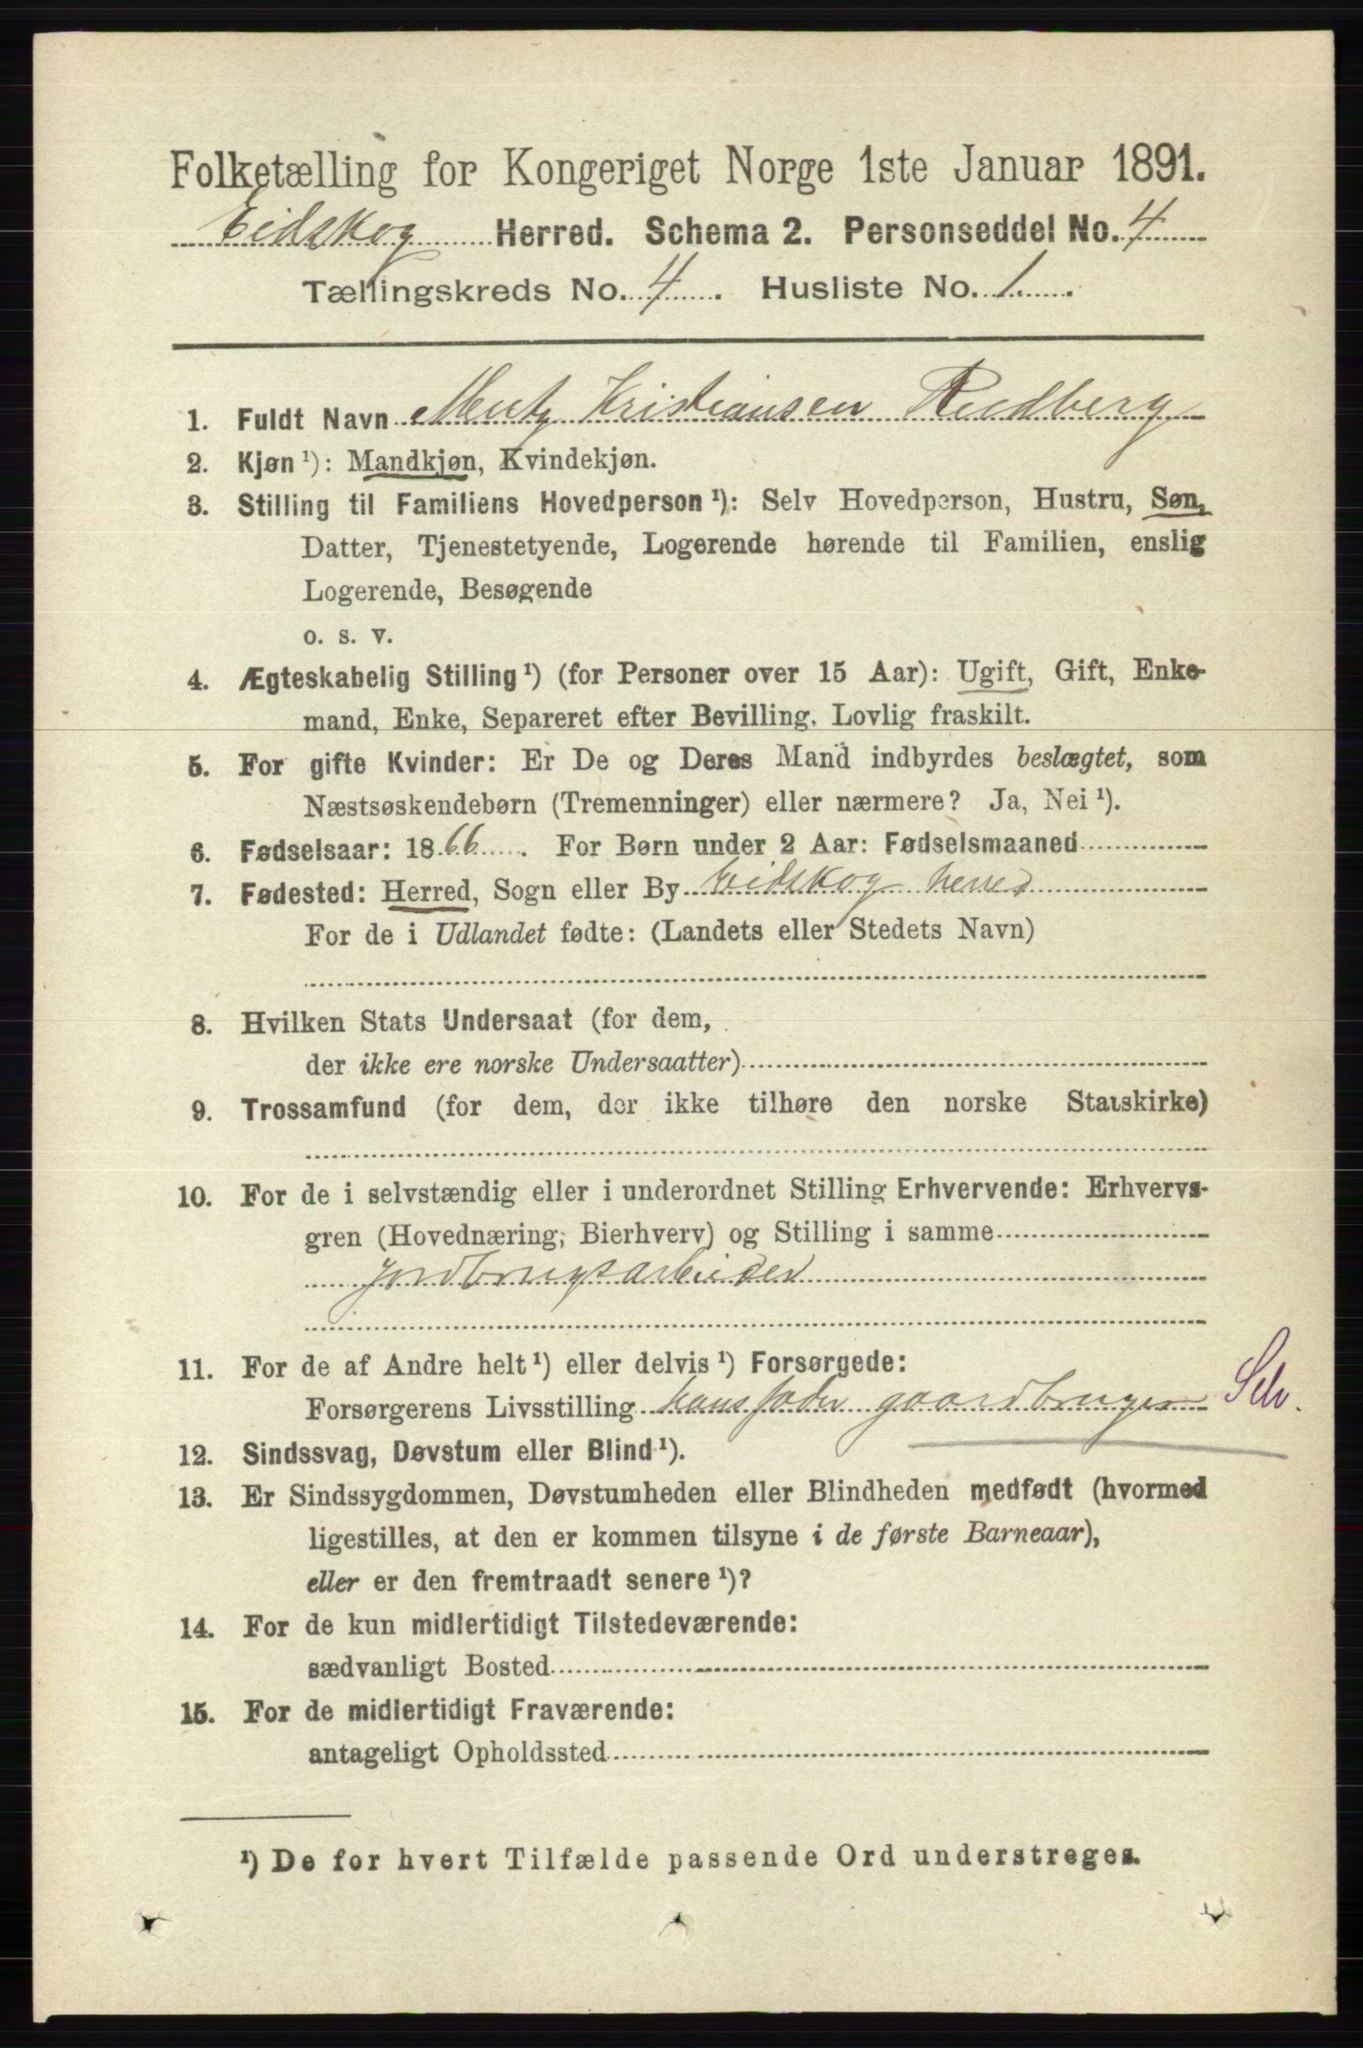 Folketælling for Kongeriget Norge 1ste Januar 1891.
Eidskog Herred. Schema 2. Personseddel No. 4
Tællingskreds No. 4. Husliste No. 1.
1. Fuldt Navn Kristiansen Rudberg
2. Kjøn ¹): Mandkjøn, Kvindekjøn.
3. Stilling til Familiens Hovedperson ¹): Selv Hovedperson, Hustru, Søn,
Datter, Tjenestetyende, Logerende hørende til Familien, enslig
Logerende, Besøgende
o. s. v.
4. Ægteskabelig Stilling ¹) (for Personer over 15 Aar): Ugift, Gift, Enke-
mand, Enke, Separeret efter Bevilling. Lovlig fraskilt.
5. For gifte Kvinder: Er De og Deres Mand indbyrdes beslægtet, som
Næstsøskendebørn (Tremenninger) eller nærmere? Ja, Nei ¹).
6. Fødselsaar: 1866. For Børn under 2 Aar: Fødselsmaaned
7. Fødested: Herred, Sogn eller By Eidskog herred
For de i Udlandet fødte: (Landets eller Stedets Navn)
8. Hvilken Stats Undersaat (for dem,
der ikke ere norske Undersaatter)
9. Trossamfund (for dem, der ikke tilhøre den norske Statskirke)
10. For de i selvstændig eller i underordnet Stilling Erhvervende: Erhvervs-
gren (Hovednæring, Bierhverv) og Stilling i samme
Jordbrugsarbeider
11. For de af Andre helt ¹) eller delvis ¹) Forsørgede:
Forsørgerens Livsstilling hans fader gaardbruger Selv.
12. Sindssvag, Døvstum eller Blind ¹).
13. Er Sindssygdommen, Døvstumheden eller Blindheden medfødt (hvormed
ligestilles, at den er kommen tilsyne i de første Barneaar),
eller er den fremtraadt senere ¹)?
14. For de kun midlertidigt Tilstedeværende:
sædvanligt Bosted
15. For de midlertidigt Fraværende:
antageligt Opholdssted
¹) De for hvert Tilfælde passende Ord understreges.